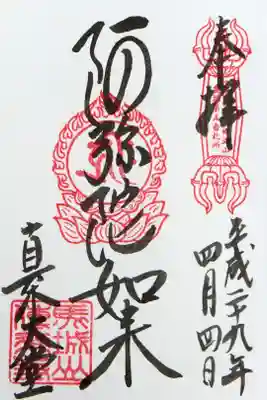 奉拝
平成二十九年
四月四日
阿弥陀如来
真木大堂